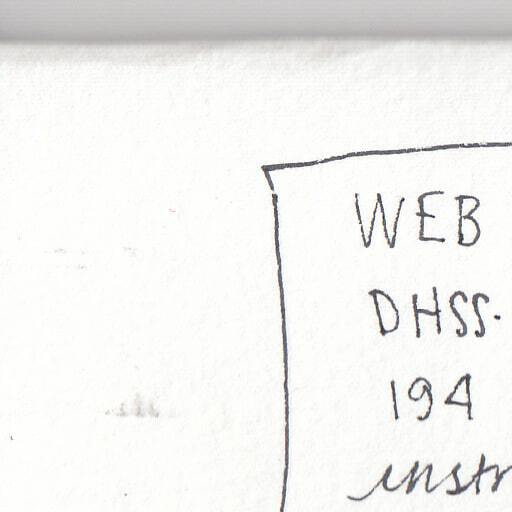 WEB
DHSS.
194
instr